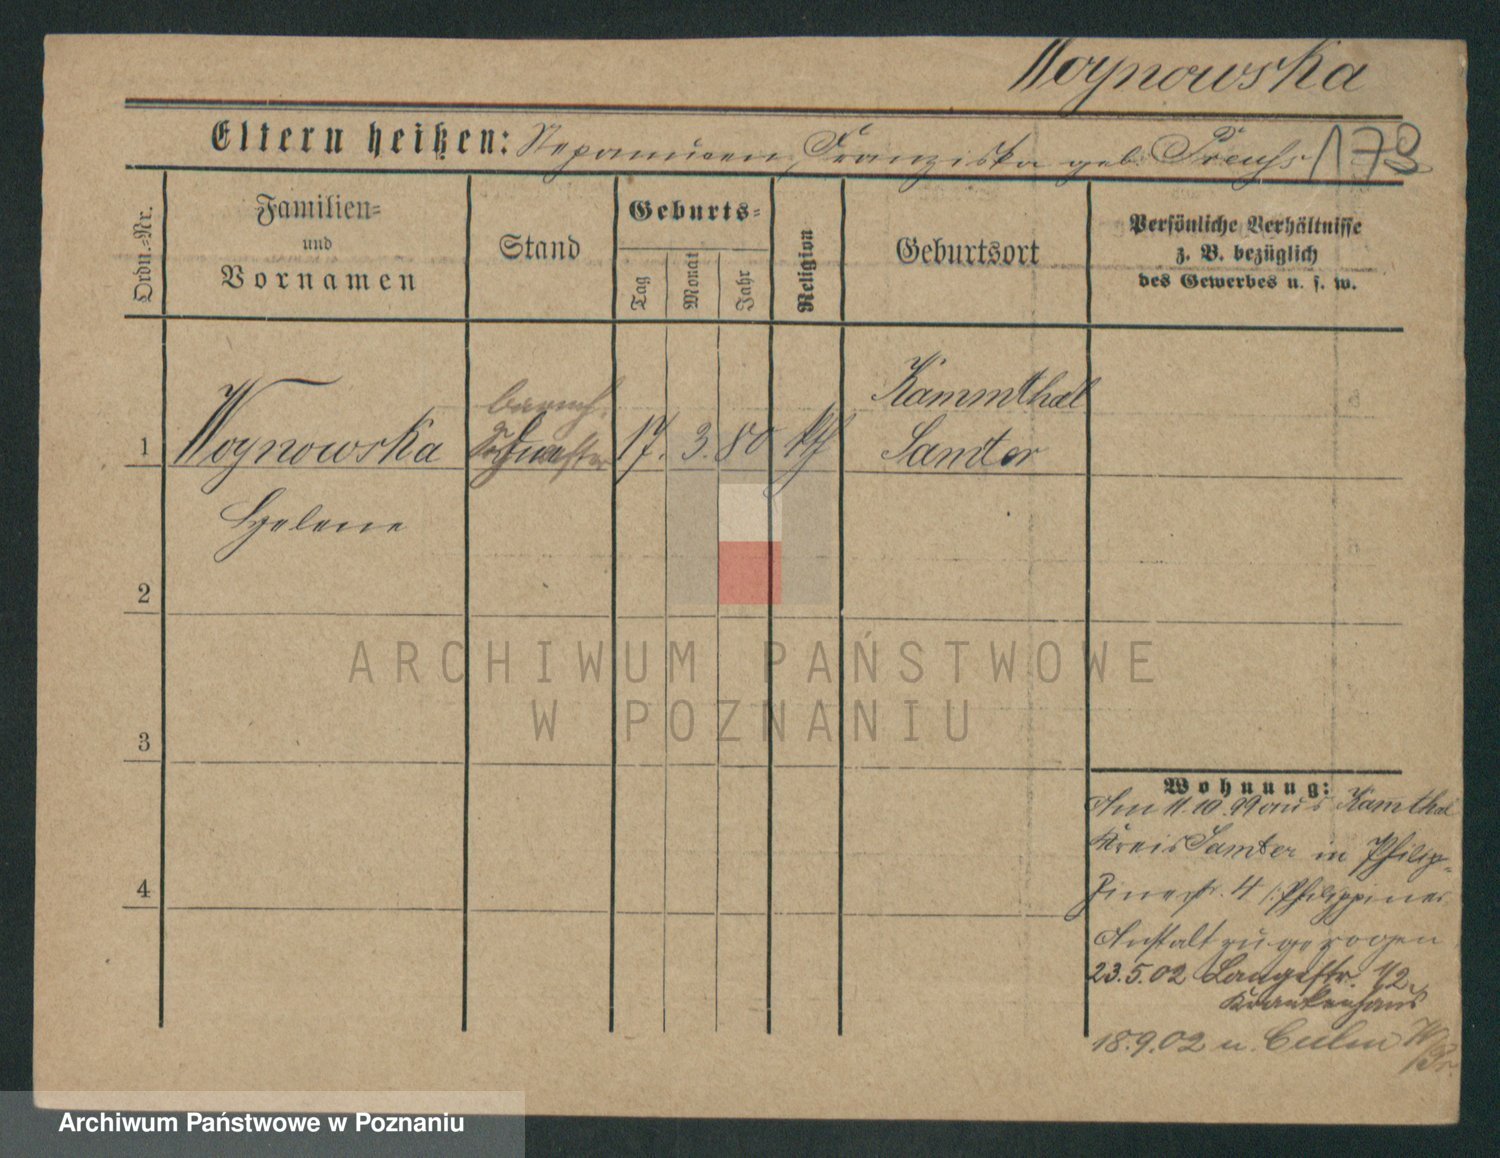 Woynowska
Eltern heißen: Franziska geb. Preuß 173
Ordn.-Nr.
Familien-
und
Vornamen
Stand
Geburts-
Tag
Monat
Jahr
Religion
Geburtsort
Persönliche Verhältnisse
z. B. bezüglich
des Gewerbes u. s. w.
barmh.
Kammthal
1 Woynowska Schwester 17. 3. 80 Samter
Helene
2
3
4
ARCHIWUM PAŃSTWOWE
W POZNANIU
Wohnung:
Am 11.10.99 aus Kamthal
Kreis Samter in Philip-
pinerstr. 4 /: Philippiner
Anstalt zugezogen
23.5.02 Langestr. 1/2
Krankenhaus
18.9.02 n. Culm W/Pr.
Archiwum Państwowe w Poznaniu